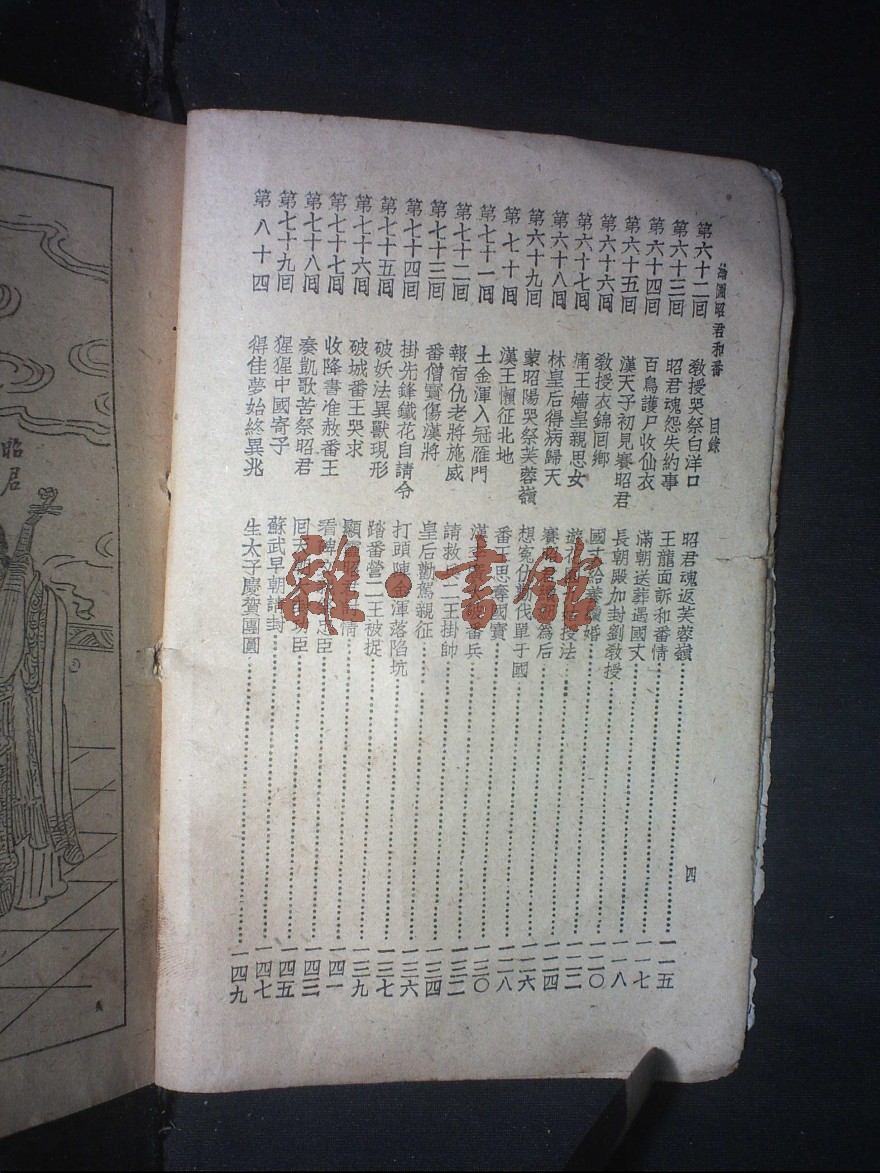 繪圖昭君和番 目錄 四
第六十二回 教授哭祭白洋口 昭君魂返芙蓉嶺 一一五
第六十三回 昭君魂怨失約事 王龍面訴和番情 一一七
第六十四回 百鳥護尸收仙衣 滿朝送葬遇國丈 一一八
第六十五回 漢天子初見賽昭君 長朝殿加封劉教授 一二〇
第六十六回 教授衣錦回鄉 國丈 婚 一二二
第六十七回 痛王嬙皇親思女 授法 一二四
第六十八回 林皇后得病歸天 賽 為后 一二六
第六十九回 蒙昭陽哭祭芙蓉嶺 想冤仇 伐單于國 一二八
第七十回 漢王懶征北地 番王思奪國寶 一三〇
第七十一回 土金渾入冠雁門 漢 番兵 一三二
第七十二回 報宿仇老將施威 請救兵二王掛帥 一三四
第七十三回 番僧寶傷漢將 皇后勸駕親征 一三六
第七十四回 掛先鋒鐵花自請令 打頭陣金渾落陷坑 一三七
第七十五回 破妖法異獸現形 踏番營二王被捉 一三九
第七十六回 破城番王哭求 顯 情 一四一
第七十七回 收降書准赦番王 看碑 忠臣 一四三
第七十八回 奏凱歌苦祭昭君 回 功臣 一四五
第七十九回 猩猩中國寄子 蘇武早朝請封 一四七
第八十四 得佳夢始終異兆 生太子慶賀團圓 一四九
昭君
雜·書館